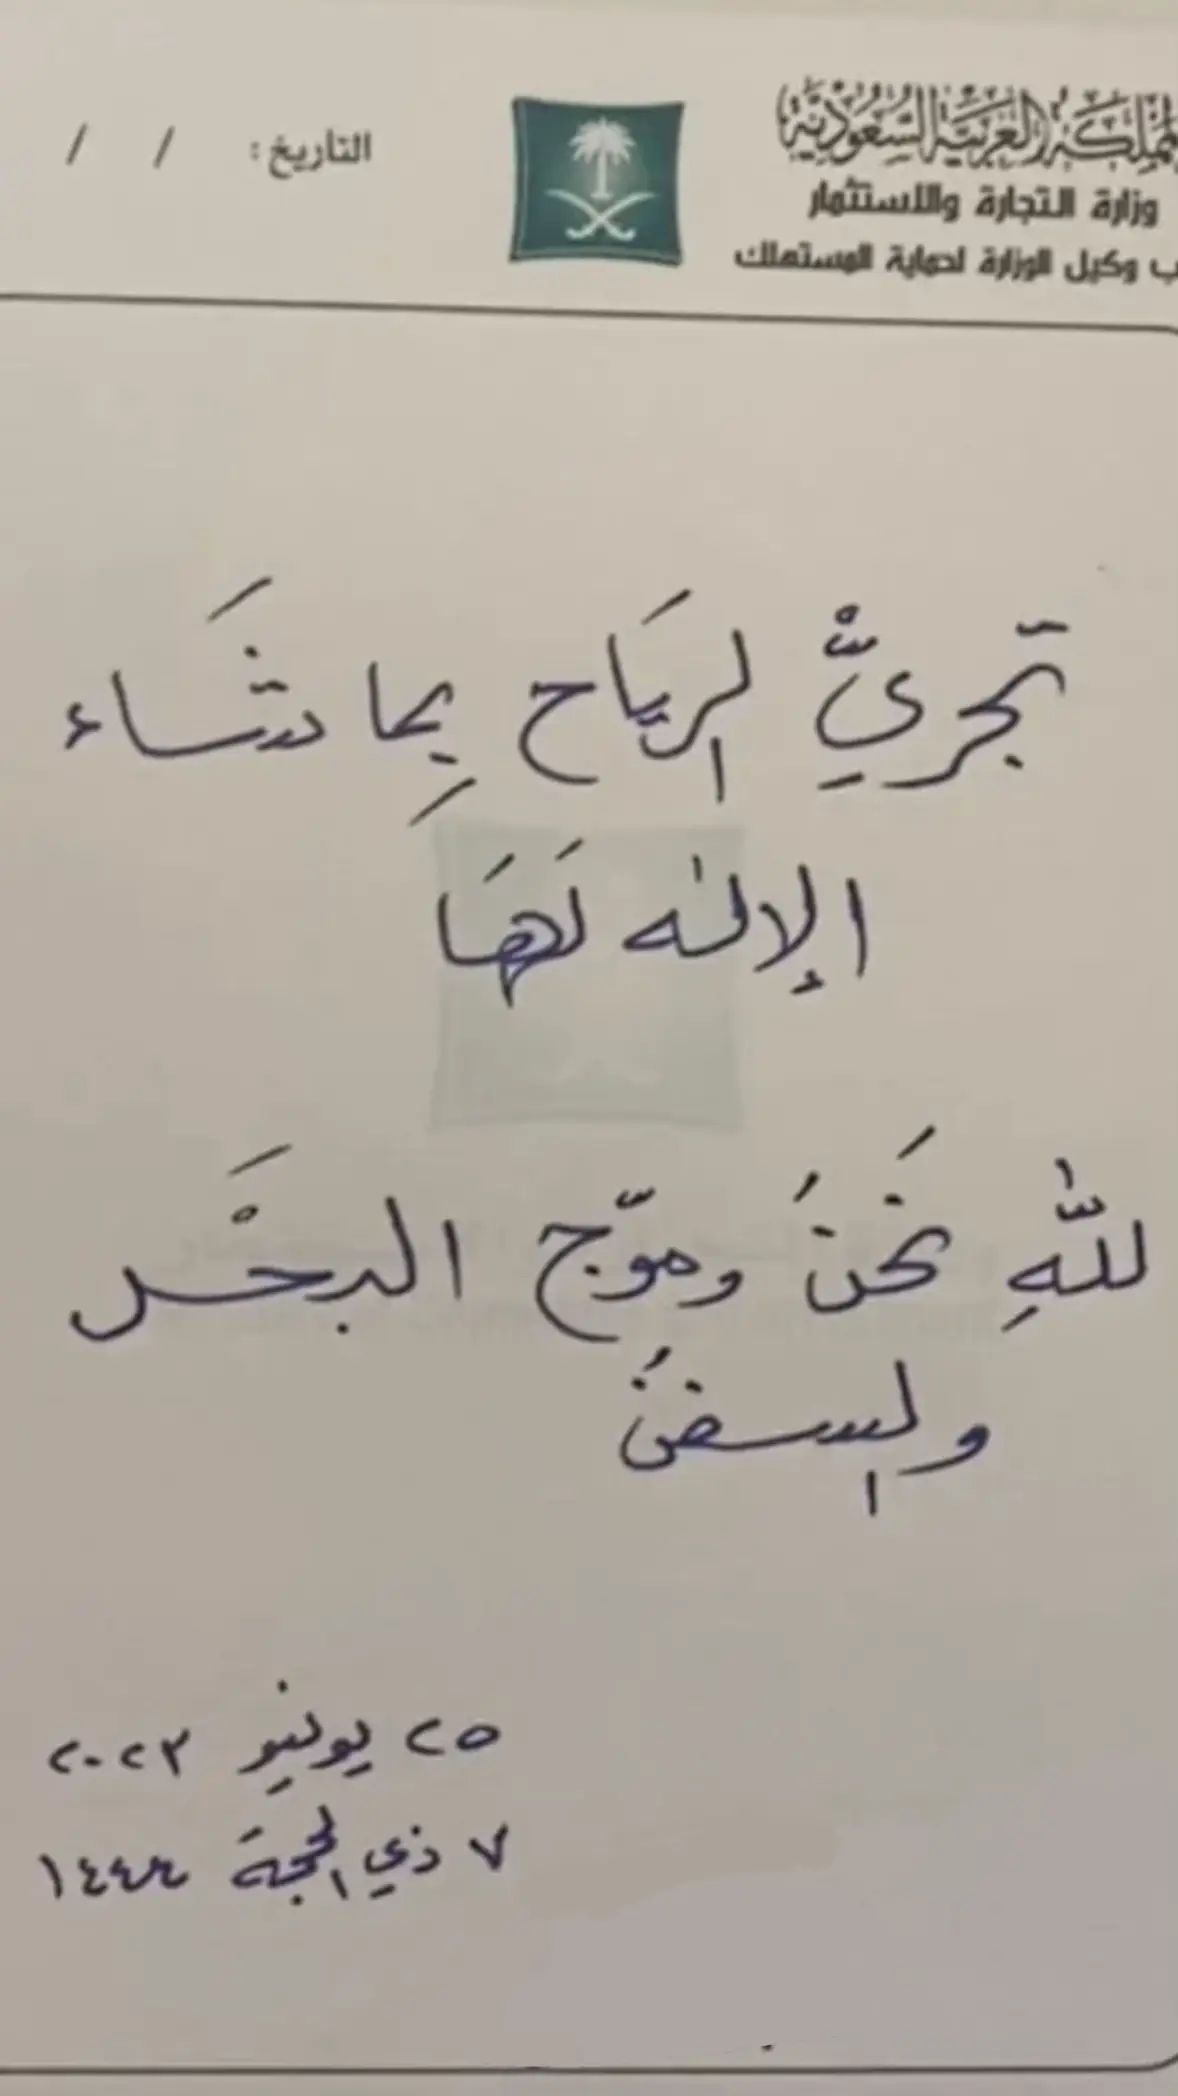 المملكة العربية السعودية
وزارة التجارة والاستثمار
وكيل الوزارة لحماية المستهلك
التاريخ: / /
تجري الرياح بما تشَاء
الإله لَهَا
للّٰهِ نَحنُ وموّج البحَْر
والسفنُ
٢٥ يونيو ٢٠٢٣
٧ ذي الحجة ١٤٤٤